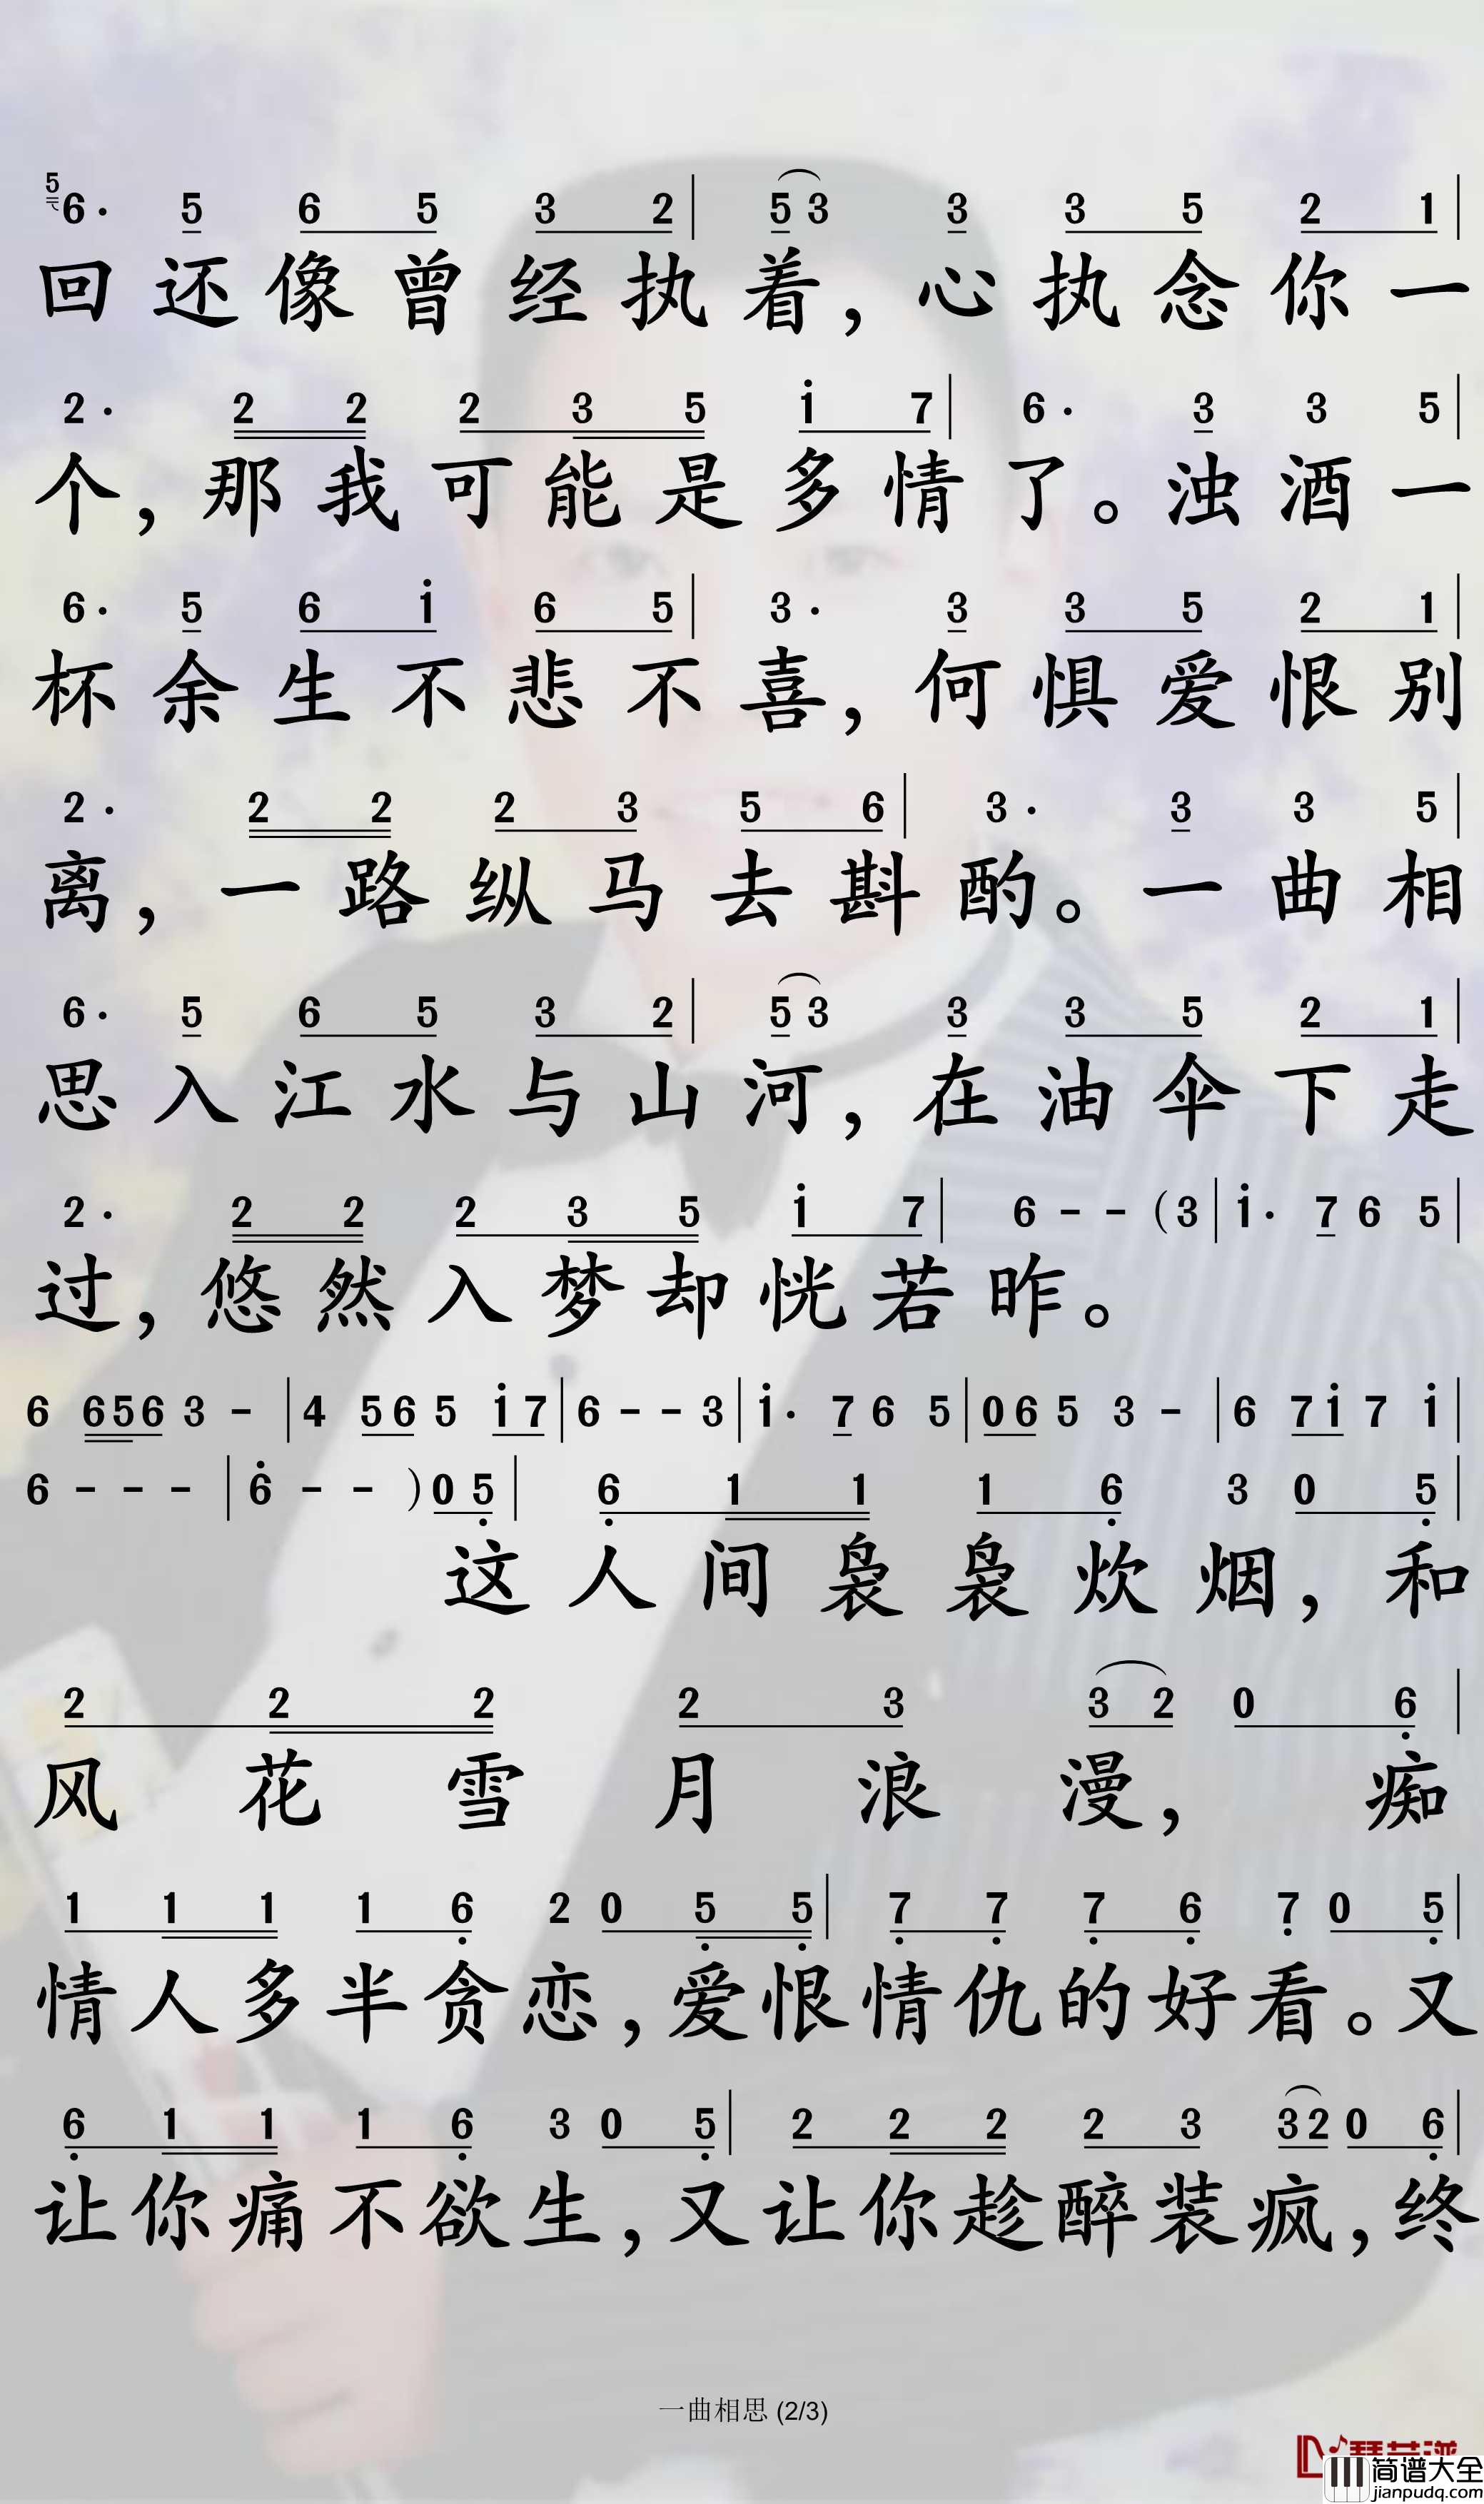 5
6· 5 6 5 3 2 | 5 3 3 3 5 2 1 |
回还像曾经执着，心执念你一
2· 2 2 2 3 5 i 7 | 6· 3 3 5 |
个，那我可能是多情了。浊酒一
6· 5 6 i 6 5 | 3· 3 3 5 2 1 |
杯余生不悲不喜，何惧爱恨别
2· 2 2 2 3 5 6 | 3· 3 3 5 |
离，一路纵马去斟酌。一曲相
6· 5 6 5 3 2 | 5 3 3 3 5 2 1 |
思入江水与山河，在油伞下走
2· 2 2 2 3 5 i 7 | 6 - - (3 | i· 7 6 5 |
过，悠然入梦却恍若昨。
6 6 5 6 3 - | 4 5 6 5 i 7 | 6 - - 3 | i· 7 6 5 | 0 6 5 3 - | 6 7 i 7 i |
6 - - - | 6 - - ) 0 5 | 6 1 1 1 6 3 0 5 |
这人间袅袅炊烟，和
2 2 2 2 3 3 2 0 6 |
风花雪月浪漫，痴
1 1 1 1 6 2 0 5 5 | 7 7 7 6 7 0 5 |
情人多半贪恋，爱恨情仇的好看。又
6 1 1 1 6 3 0 5 | 2 2 2 2 3 3 2 0 6 |
让你痛不欲生，又让你趁醉装疯，终
一曲相思 (2/3)
简谱大全
jianpudq.com